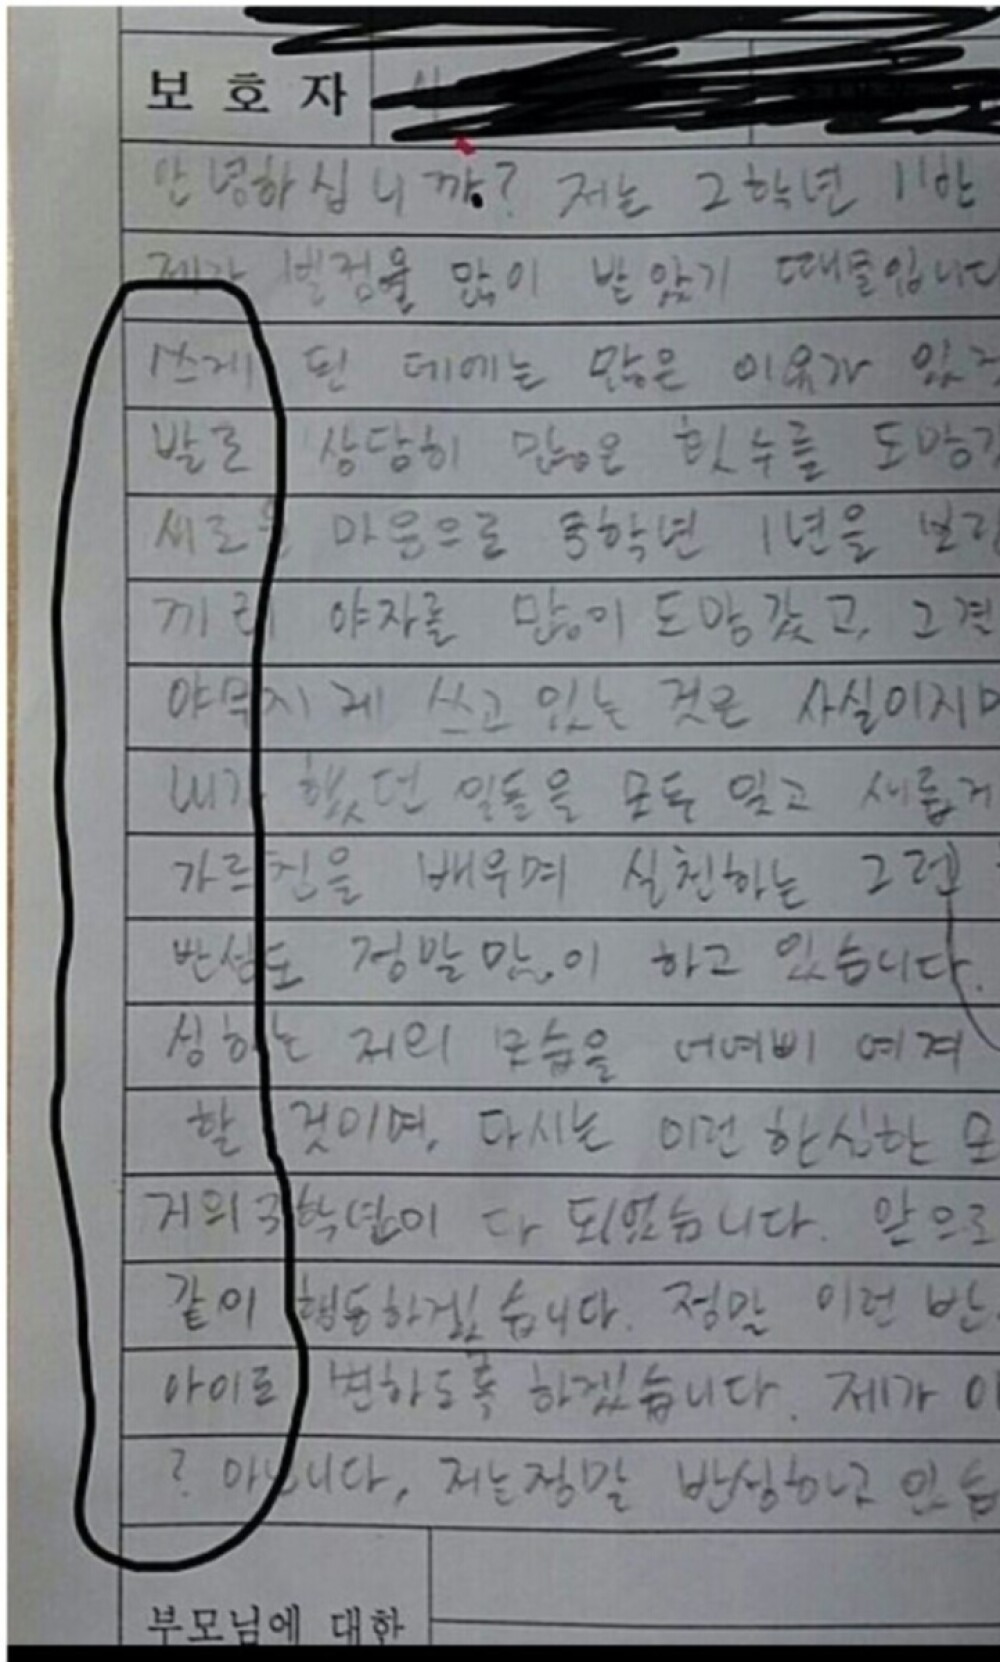 보호자
안녕하십니까? 저는 2학년 11반
제가 벌점을 많이 받았기 때문입니다
쓰게 된 데에는 많은 이유가 있
발로 상당히 많은 횟수를 도망
새로운 마음으로 중학년 1년을 보
끼리 야자를 많이 도망갔고, 그
야무지게 쓰고 있는 것은 사실이지
내가 했던 일들을 모두 잊고 새롭게
가르침을 배우며 실천하는 그런
반성도 정말 많이 하고 있습니다.
성하는 저의 모습을 어여삐 여겨
할 것이며, 다시는 이런 한심한 모
거의 3학년이 다 되었습니다. 앞으로
같이 행동하겠습니다. 정말 이런 반
아이로 변하도록 하겠습니다. 제가 이
? 아닙니다, 저는 정말 반성하고 있습
부모님에 대한